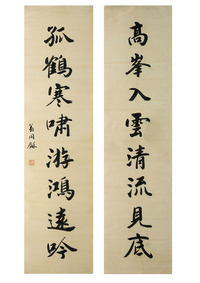 高峯入雲清流見底
孤鶴寒嘯游鴻遠吟
翁同龢